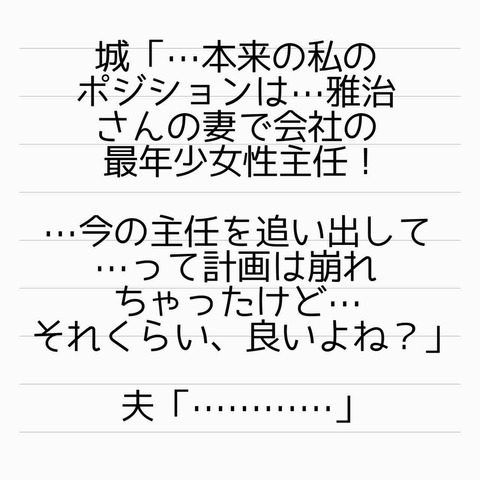 城「…本来の私の
ポジションは…雅治
さんの妻で会社の
最年少女性主任！
…今の主任を追い出して
…って計画は崩れ
ちゃったけど…
それくらい、良いよね？」
夫「…………」